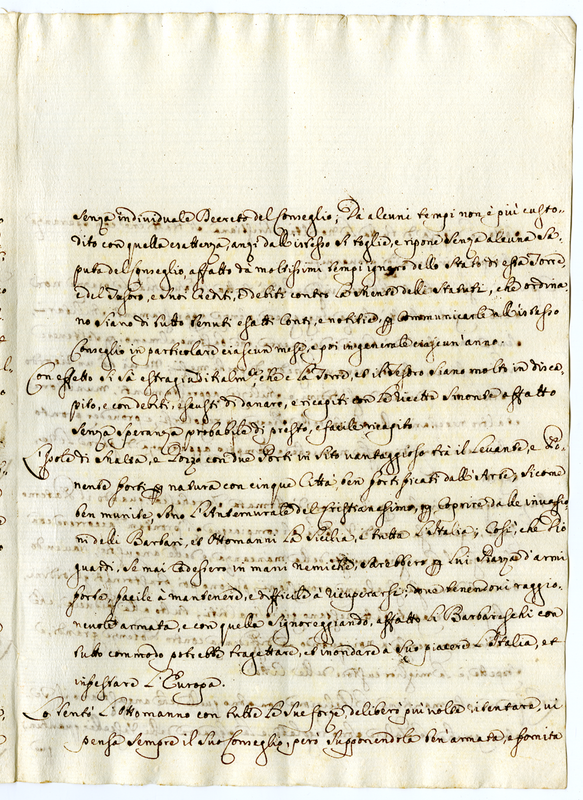 senza individuale Decreto del Conseglio; Da alcuni tempi non, è più custo=
dito con quella esattezza, anzi dall'istesso si toglie, e ripone senza alcuna sa=
puta del Conseglio, affatto da moltissimi tempi ignaro dello Stato di essa Torre
e del Tesoro, e suoi Crediti, e debiti contro la Mente delli Statuti, che ordina=
no siano di tutto tenuti esatti conti, e notitie, per communicarle all'istesso
Conseglio in particolare ciascun mese, e poi in generale ciascun'anno.
Con effetto si sà estragiuditialmte che e la Torre, et il Tesoro siano molto in disca=
pito, e con debiti, esausti di danaro, e ricapiti con le ricette smonte affatto
senza speranza probabile di presto, e facile ricapito
L'Isole di Malta, e Gozzo con due Porti in sito vantaggioso trà il Levante, e Po=
nente forti per natura con cinque Città ben fortificati dall'Arte, sicome
ben munite, sono l'Antemurale del Cristianesimo, per coprire dalle invasio=
ni delli Barbari, et Ottomanni la Sicilia, e tutta l'Italia; Così, che Dio
guardi. Se mai cadessero in mani nemiche, sarebbero per lui Piazza d'armi
forte, facile à mantenere, e difficile à ricuperarse; dove tenendoni raggio=
nevole armata, e con quella signoreggiando, affatto li Barbareschi con
tutto commodo potrebbe tragettare, et inondare a suo piacere l'Italia, et
infestare l'Europa.
La tentò l'Ottomanno con tutte le sue forze, deliberò più volte ritentare, vi
pensa sempre il suo Conseglio, però supponendola ben'armata, e fornita